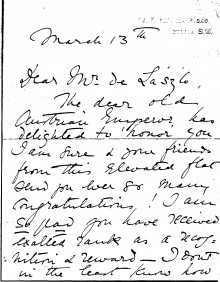 March 13th
Dear Mr. de László,
The dear old
Austrian Emperor has
delighted to honor you
I am sure & your friends
from this Elevated flat
send you ever so many
Congratulations! I am
so glad you have received
exalted rank as a recog-
nition & reward — I don't
in the least know how